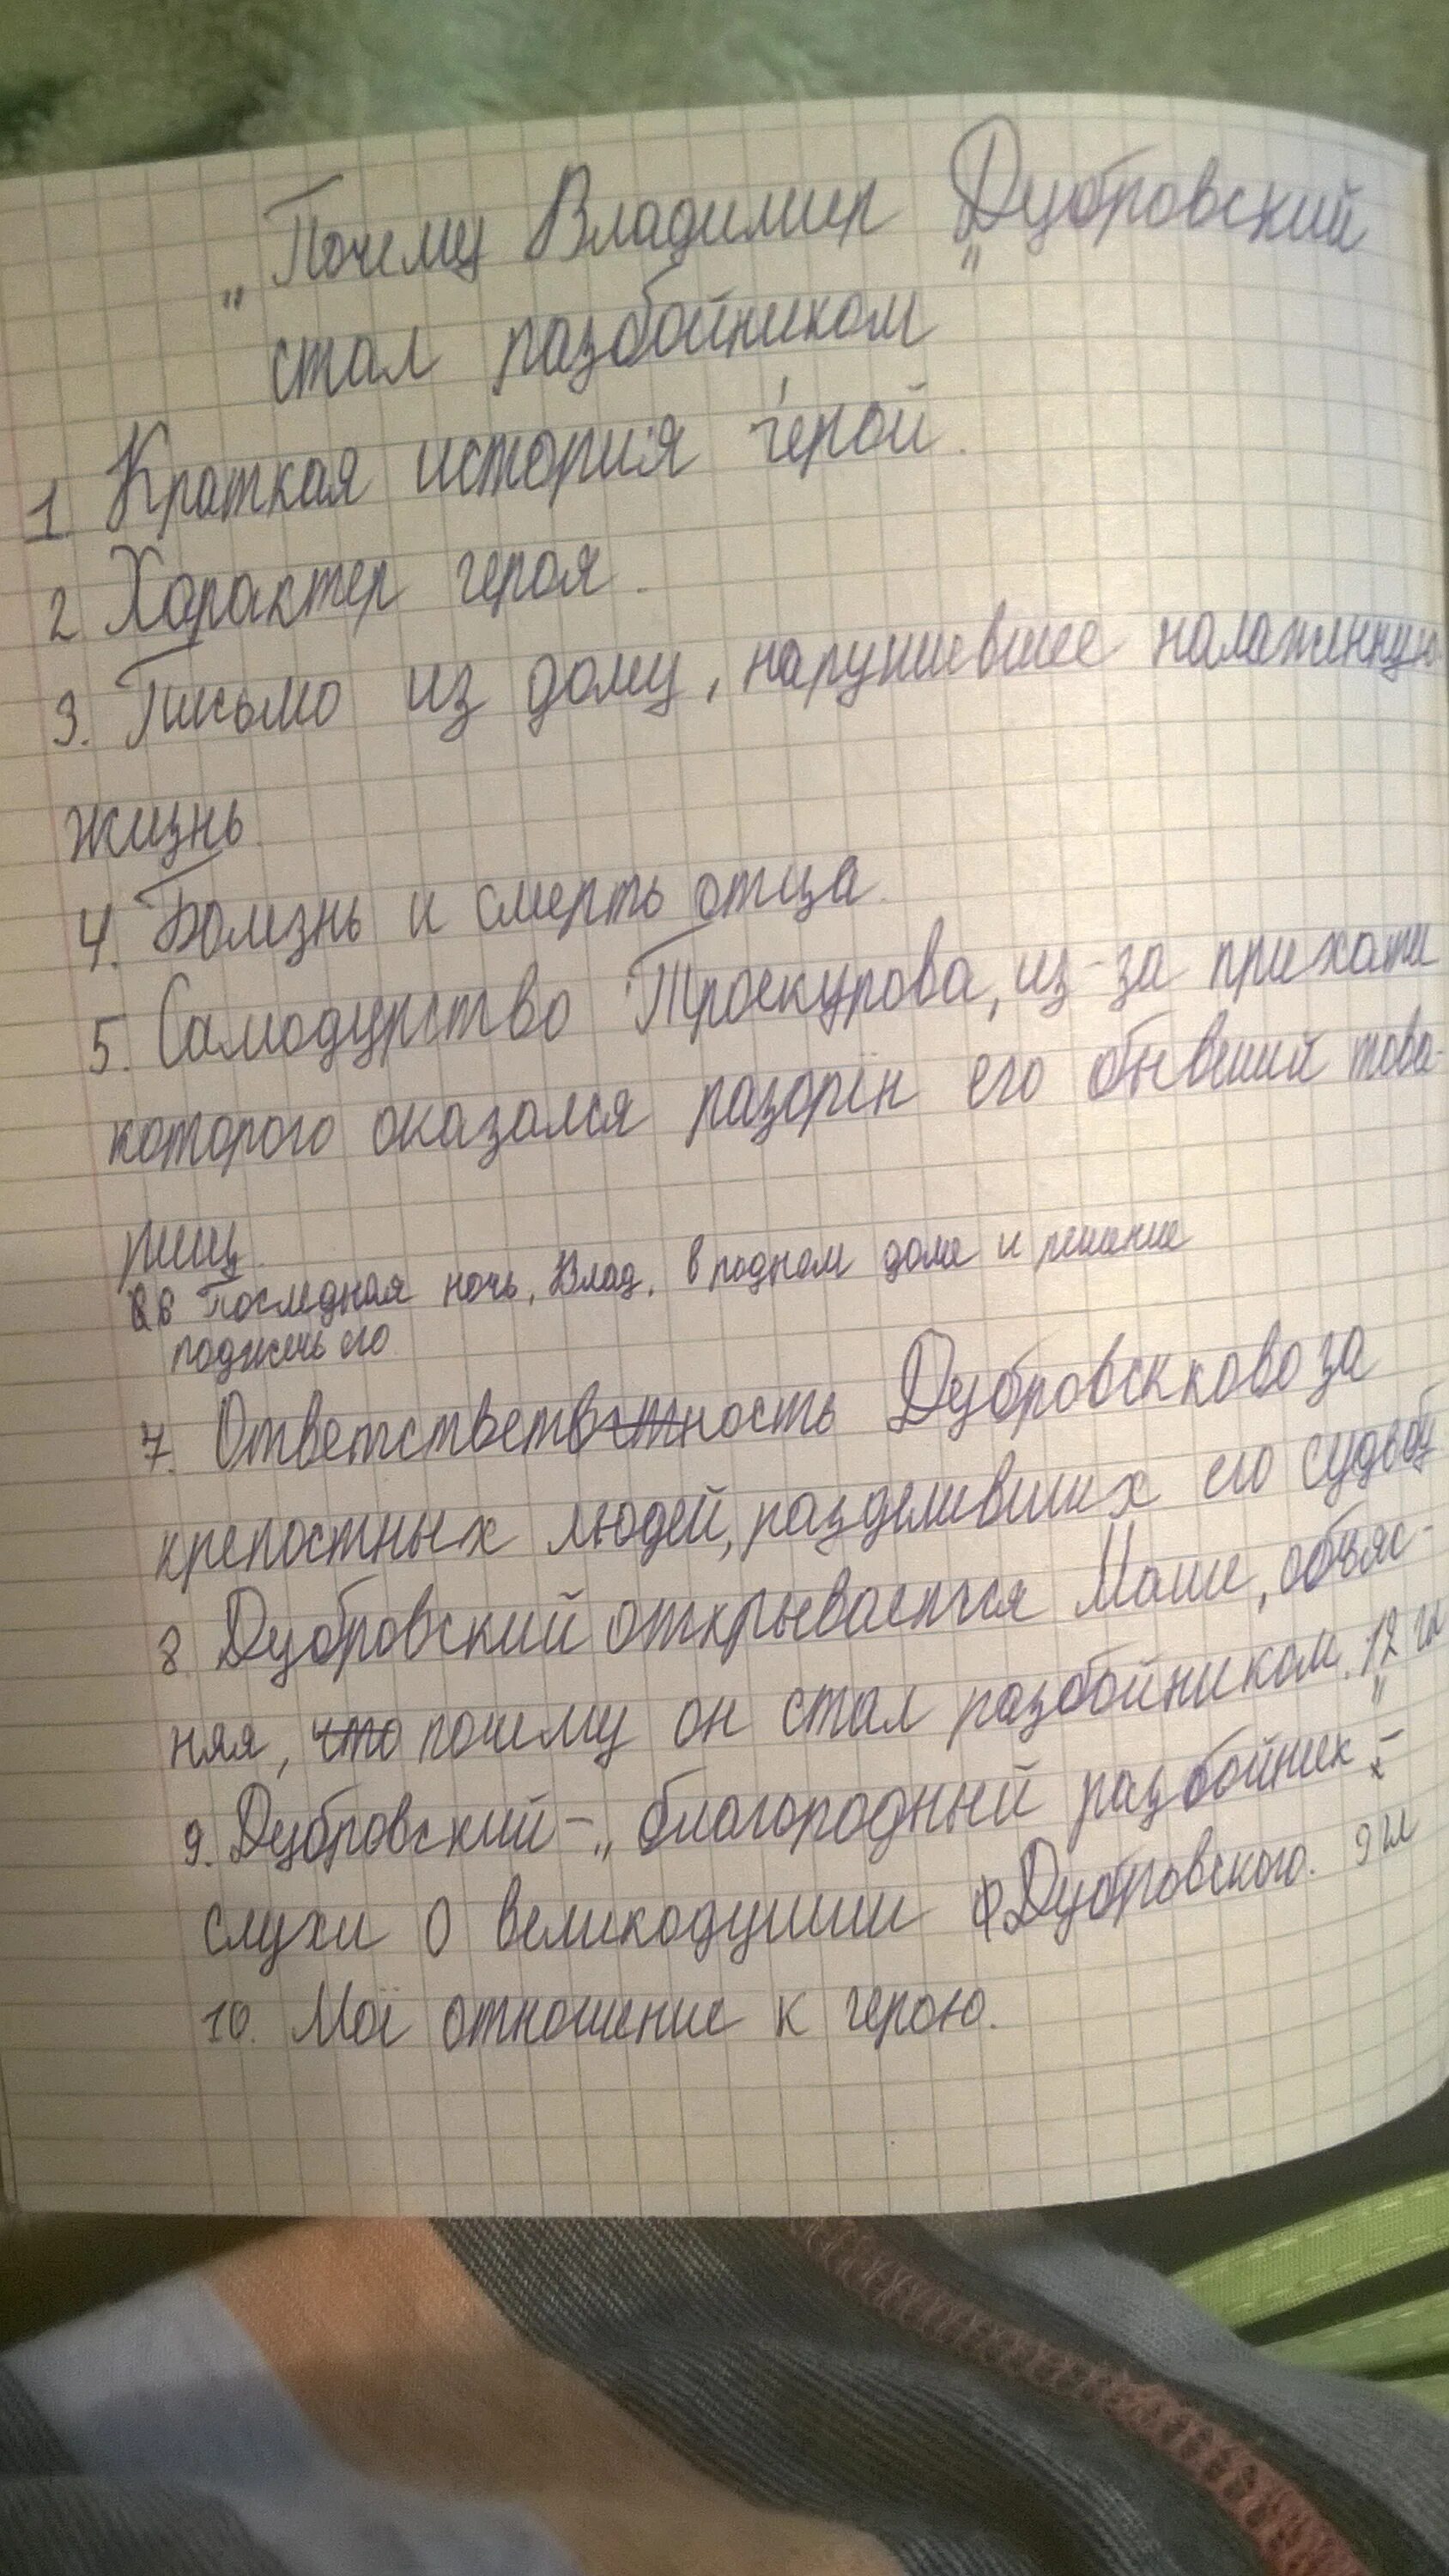 „Почему Владимир Дубровский
стал разбойником"
1. Краткая история герой.
2 Характер героя.
3. Письмо из дому, нарушившее налаженную
жизнь.
4. Болезнь и смерть отца.
5. Самодурство Троекурова, из-за прихоти
которого оказался разорён его бывший това-
рищ.
6 Последная ночь, Влад. в родном доме и решение
поджечь его
7. Ответственность Дубровскково за
крепостных людей, разделивших его судьбу
8 Дубровский открывается Маше, объяс-
няя, что почему он стал разбойником. 12 гл
9. Дубровский – „благородный разбойник":
слухи о великодушии Дубровского. 9 гл
10. Моё отношение к герою.